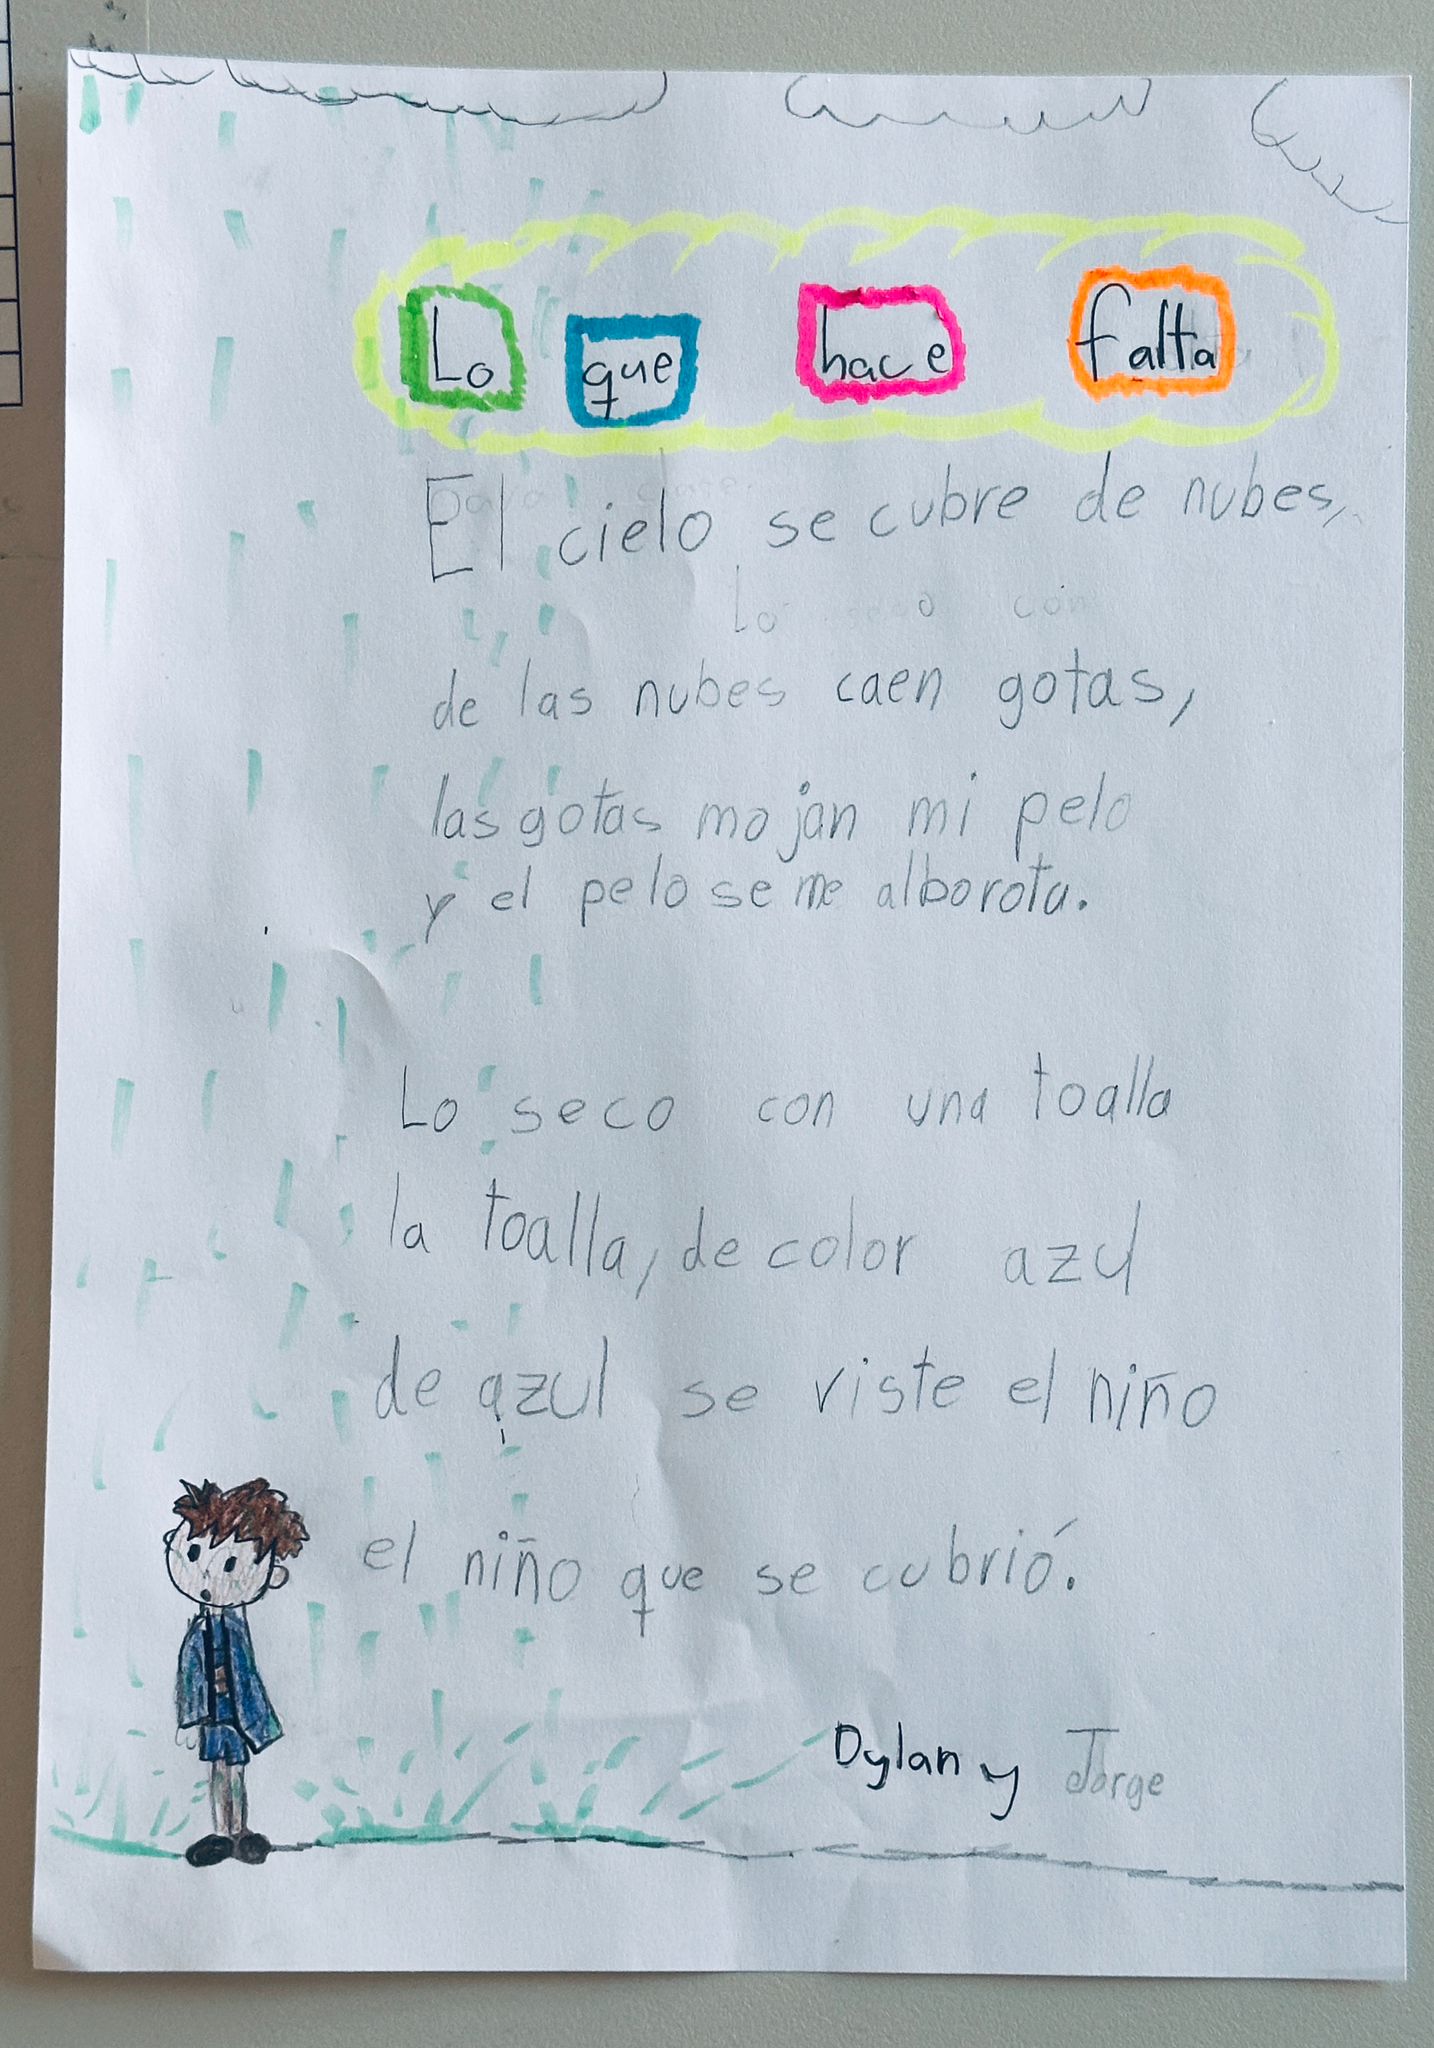 Lo que hace falta
El cielo se cubre de nubes,
Lo seco con
de las nubes caen gotas,
las gotas mojan mi pelo
y el pelo se me alborota.
Lo seco con una toalla
la toalla, de color azul
de azul se viste el niño
el niño que se cubrió.
Dylan y Jorge